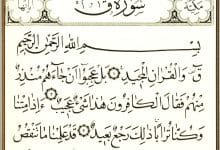 سورة ق
مكية
بسم الله الرحمن الرحيم
ق والقرآن المجيد بل عجبوا أن جاءهم منذر
منهم فقال الكافرون هذا شيء عجيب أءذا متنا
وكنا ترابا ذلك رجع بعيد قد علمنا ما تنقص